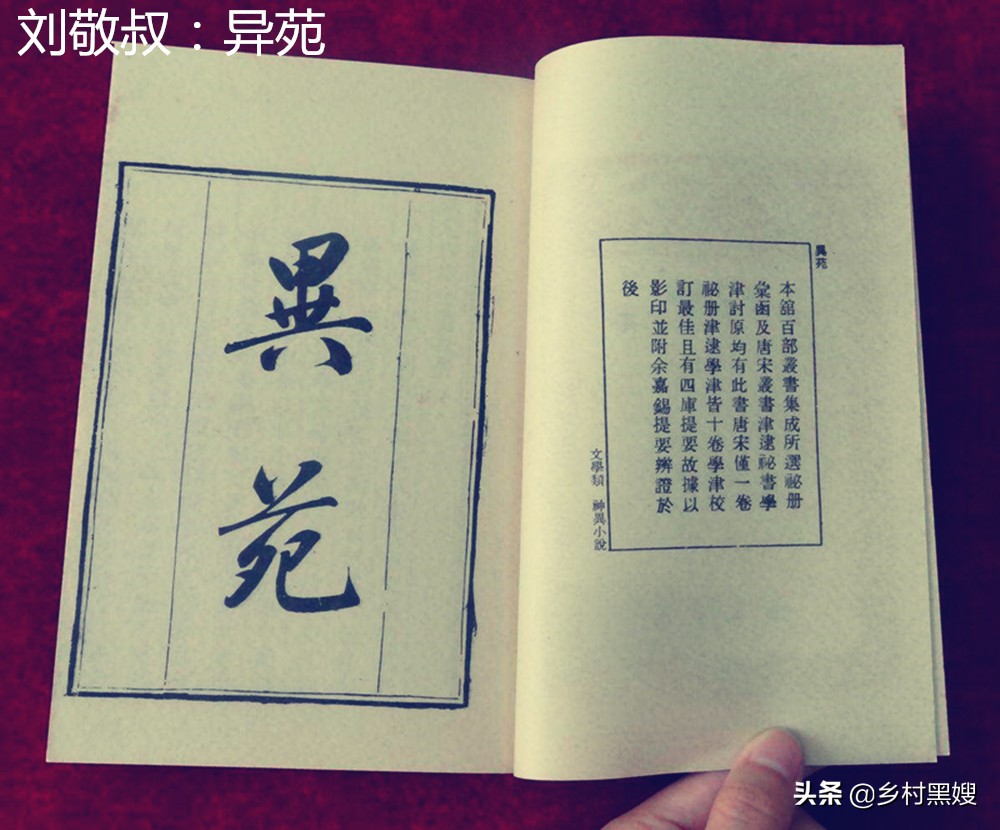 刘敬叔：异苑
異苑
異苑
本舘百部叢書集成所選祕册
彙函及唐宋叢書津逮祕書學
津討原均有此書唐宋僅一卷
祕册津逮學津皆十卷學津校
訂最佳且有四庫提要故據以
影印並附余嘉錫提要辨證於
後
文學類 神異小說
头条 @乡村黑嫂